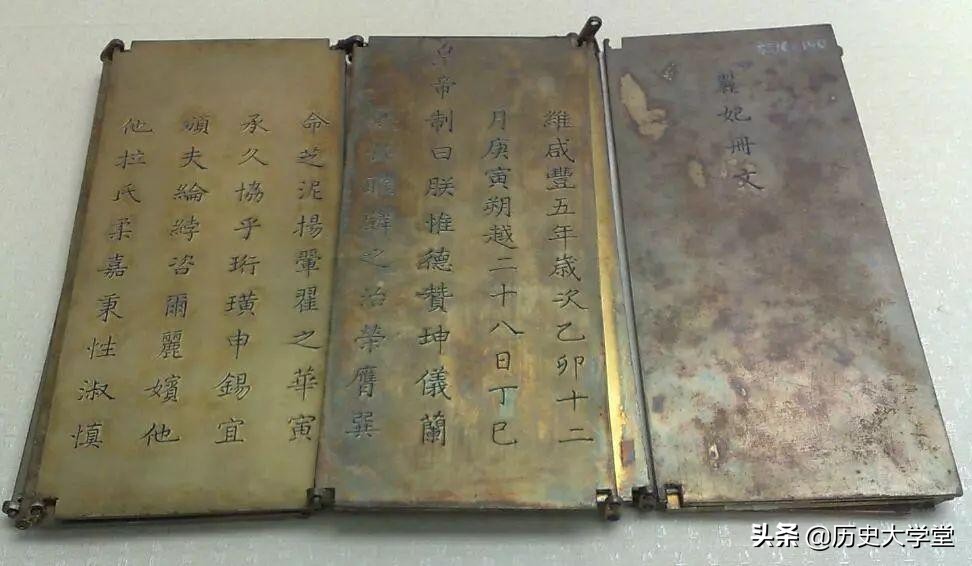 麗妃冊文
維咸豐五年歲次乙卯十二
月庚寅朔越二十八日丁巳
皇帝制曰朕惟德贊坤儀蘭
之治榮膺巽
命芝泥揚翬翟之華寅
承久協乎珩璜申錫宜
頒夫綸綍咨爾麗嬪他
他拉氏柔嘉秉性淑慎
头条 @历史大学堂